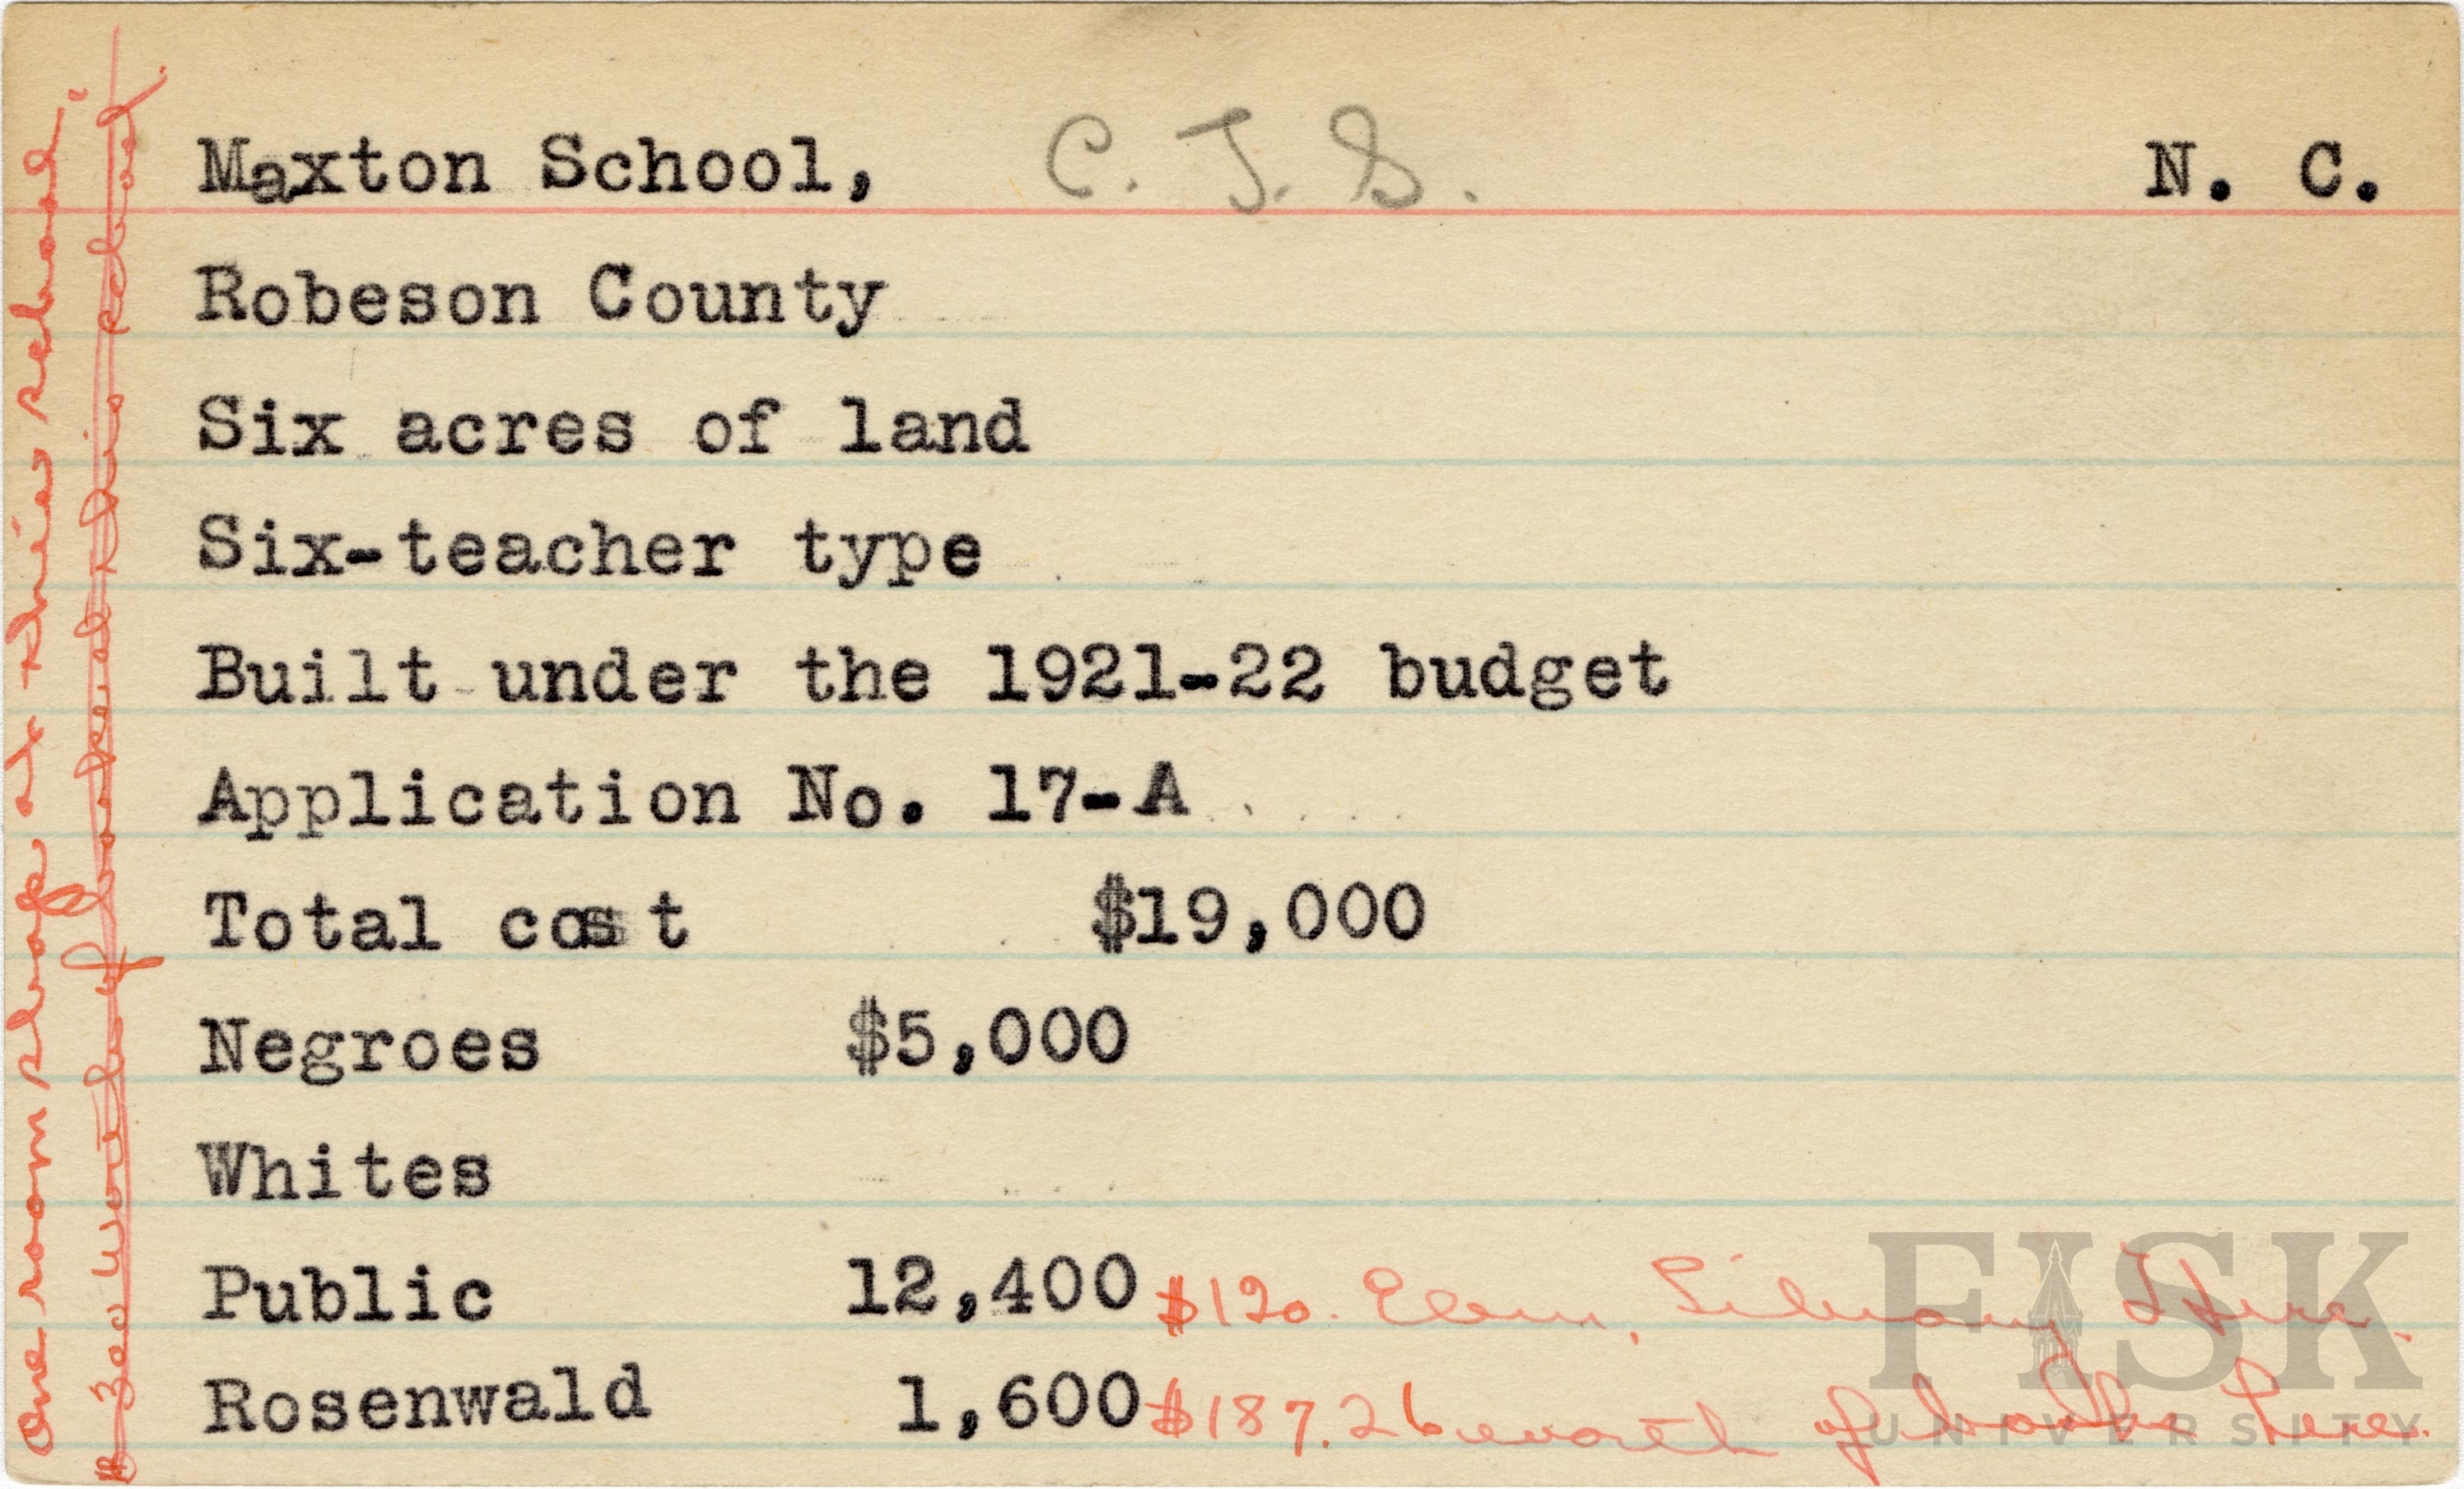 Maxton School, C. T. S. N. C.
Robeson County
Six acres of land
Six-teacher type
Built under the 1921-22 budget
Application No. 17-A
Total cost $19,000
Negroes $5,000
Whites
Public 12,400 $120. Elem. Library Here.
Rosenwald 1,600 $187.26 worth of books here.
One room shop at this school.
worth of at this school.
FISK
UNIVERSITY